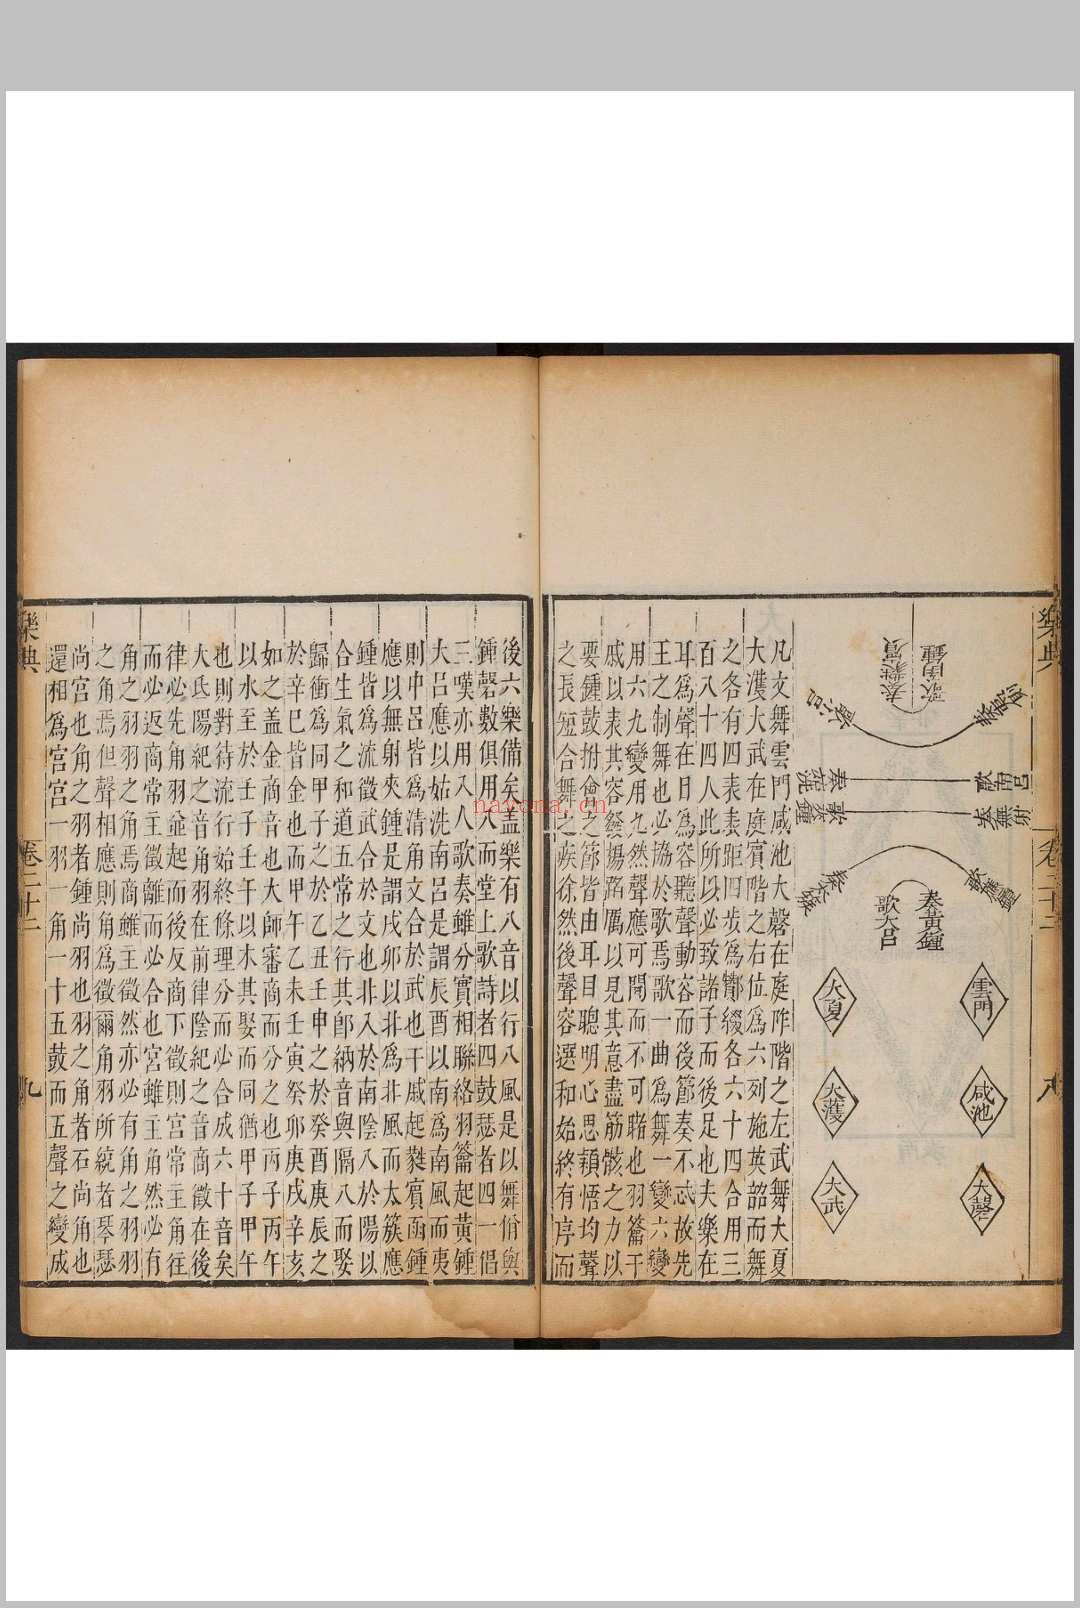 樂典
卷三十二
八
奏蕤賓
歌函鍾
歌南呂
奏無射
奏黃鍾
歌大呂
雲門
咸池
大磬
大夏
大濩
大武
凡文舞雲門咸池大磬在庭阼階之左武舞大夏
大濩大武在庭賓階之右位爲六列施英韶而舞
之各有四表表距四步爲酇綴各六十四合用三
百八十四人此所以必致諸子而後足也夫樂在
耳爲聲在目爲容聽聲動容而後節奏不忒故先
王之制舞也必協於歌焉歌一曲爲舞一變六變
用六九變用九然聲應可聞而不可睹也羽籥干
戚以表其容發揚蹈厲以見其意盡筋骸之力以
要鍾鼓拊會之節皆由耳目聰明心思穎悟均聲
之長短合舞之疾徐然後聲容選和始終有序而
後六樂備矣蓋樂有八音以行八風是以舞佾與
鍾磬數俱用八而堂上歌詩者四鼓瑟者四一倡
三嘆亦用八人歌奏雖分實相聯絡羽籥起黃鍾
大呂應以姑洗南呂是謂辰酉以南爲南風而夷
則中呂皆爲清角文合於武也干戚起蕤賓函鍾
應以無射夾鍾是謂戌卯以北爲北風而太簇應
鍾皆爲流徵武合於文也非入於南陰入於陽以
合生氣之和道五常之行其卽納音與隔八而娶
歸衝爲同甲子之於乙丑壬申之於癸酉庚辰之
於辛巳皆金也而甲午乙未壬寅癸卯庚戌辛亥
如之蓋金商音也大師審商而分之也丙子丙午
以水至於壬子壬午以木其娶而同猶甲子甲午
也則對待流行始終條理分而必合成六十音矣
大氐陽紀之音角羽在前律陰紀之音商徵在後
律必先角羽並起而後反商下徵則宮常主角往
而必返商常主徵離而必合也宮雖主角然必有
角之羽羽之角焉商雖主徵然亦必有角之羽羽
之角焉但聲相應則角爲徵爾角羽所統者琴瑟
尚宮也角之羽者鍾尚羽也羽之角者石尚角也
還相爲宮宮一羽一角一十五鼓而五聲之變成
樂典
卷三十二
九
nayona.cn